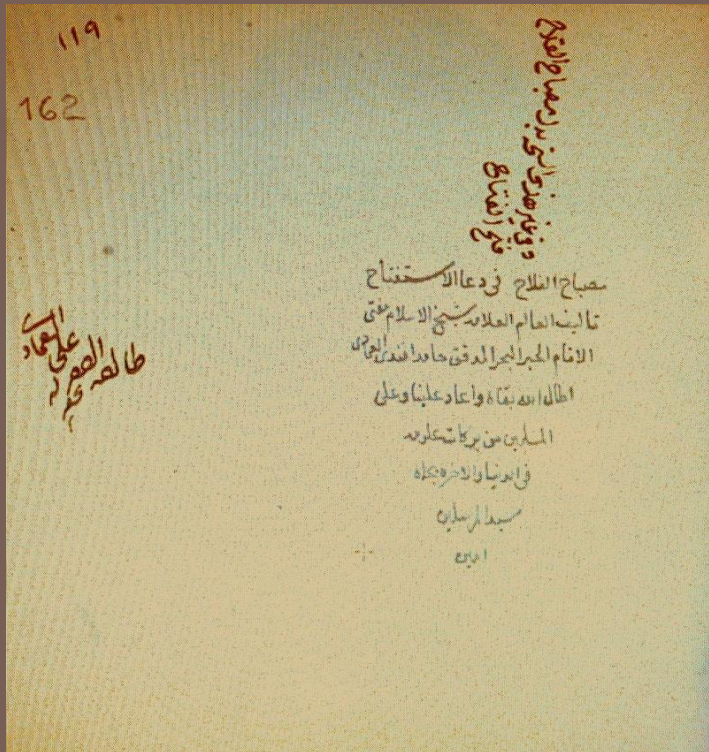 ١١٩
162
وفي غير هذه النسخة بدل مصباح الفلاح
فتح الفتاح
مصباح الفلاح في دعا الاستفتاح
تاليف العالم العلامه شيخ الاسلام مفتي
الانام الحبر البحر المدقق حامد افندي العمادي
اطال الله بقاه واعاد علينا وعلى
المسلمين من بركات علومه
في الدنيا والاخره بجاه
سيد المرسلين
امين
طالعه الفقير
علي